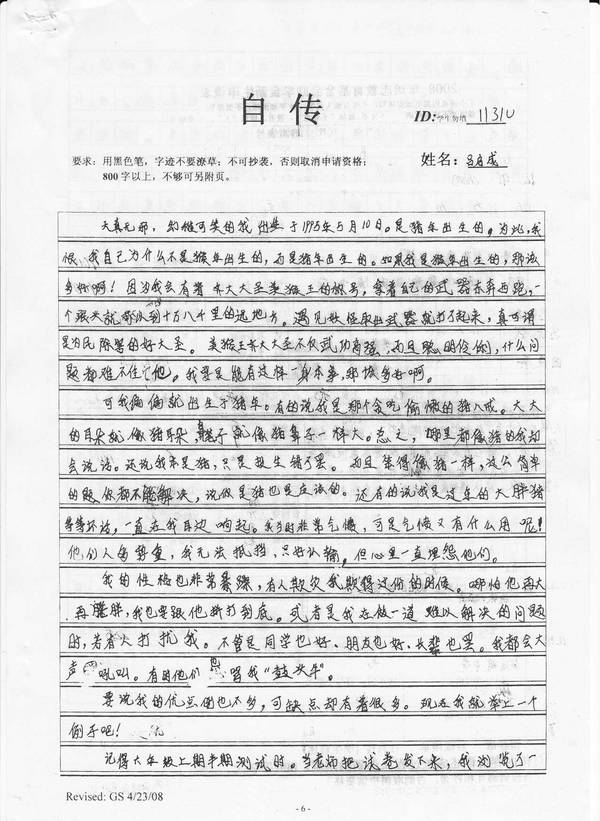 自传
ID:学生勿填 11310
要求:用黑色笔,字迹不要潦草;不可抄袭,否则取消申请资格;
800字以上,不够可另附页。
姓名:
天真无邪,幼稚可笑的我出生于1995年5月10日。是猪年出生的。为此,我
恨我自己为什么不是猴年出生的,而是猪年出生的。如果我是猴年出生的,那该
多好啊!因为我会有着齐天大圣美猴王的称号,拿着自己的武器东奔西跑,一
个跟头就到十万八千里的远地方。遇见妖怪取出武器就打了起来,真可谓
是为民除害的好大圣。美猴王齐天大圣不仅武功高强,而且聪明伶俐,什么问
题都难不住他。我要是能有这样一身本事,那该多好啊。
可我偏偏就出生于猪年。有的说我是那个贪吃偷懒的猪八戒。大大
的耳朵就像猪耳朵,鼻子就像猪鼻子一样大。总之,哪里都像猪的我却
会说话。还说我本是猪,只是投生错了罢。而且笨得像猪一样,这么简单
的题你都不能解决,说你是猪也是应该的。还有的说我是这年的大胖猪
等等坏话,一直在我耳边响起。我当时非常气愤,可是气愤又有什么用呢!
他们人多势重,我无法抵挡,只好认输。但心里一直埋怨他们。
我的性格也非常暴躁,有人欺负我欺得过份的时候。哪怕他再大
再胖,我也要跟他拼打到底。或者是我在做一道难以解决的问题
时,若有人打扰我。不管是同学也好、朋友也好、长辈也罢。我都会大
声吼叫。有时他们骂我“鼓头牛”。
要说我的优点倒也不多,可缺点却有着很多。现在我就举上一个
例子吧!
记得六年级上期半期测试时。当老师把试卷发下来,我浏览了一
Revised: GS 4/23/08
- 6 -